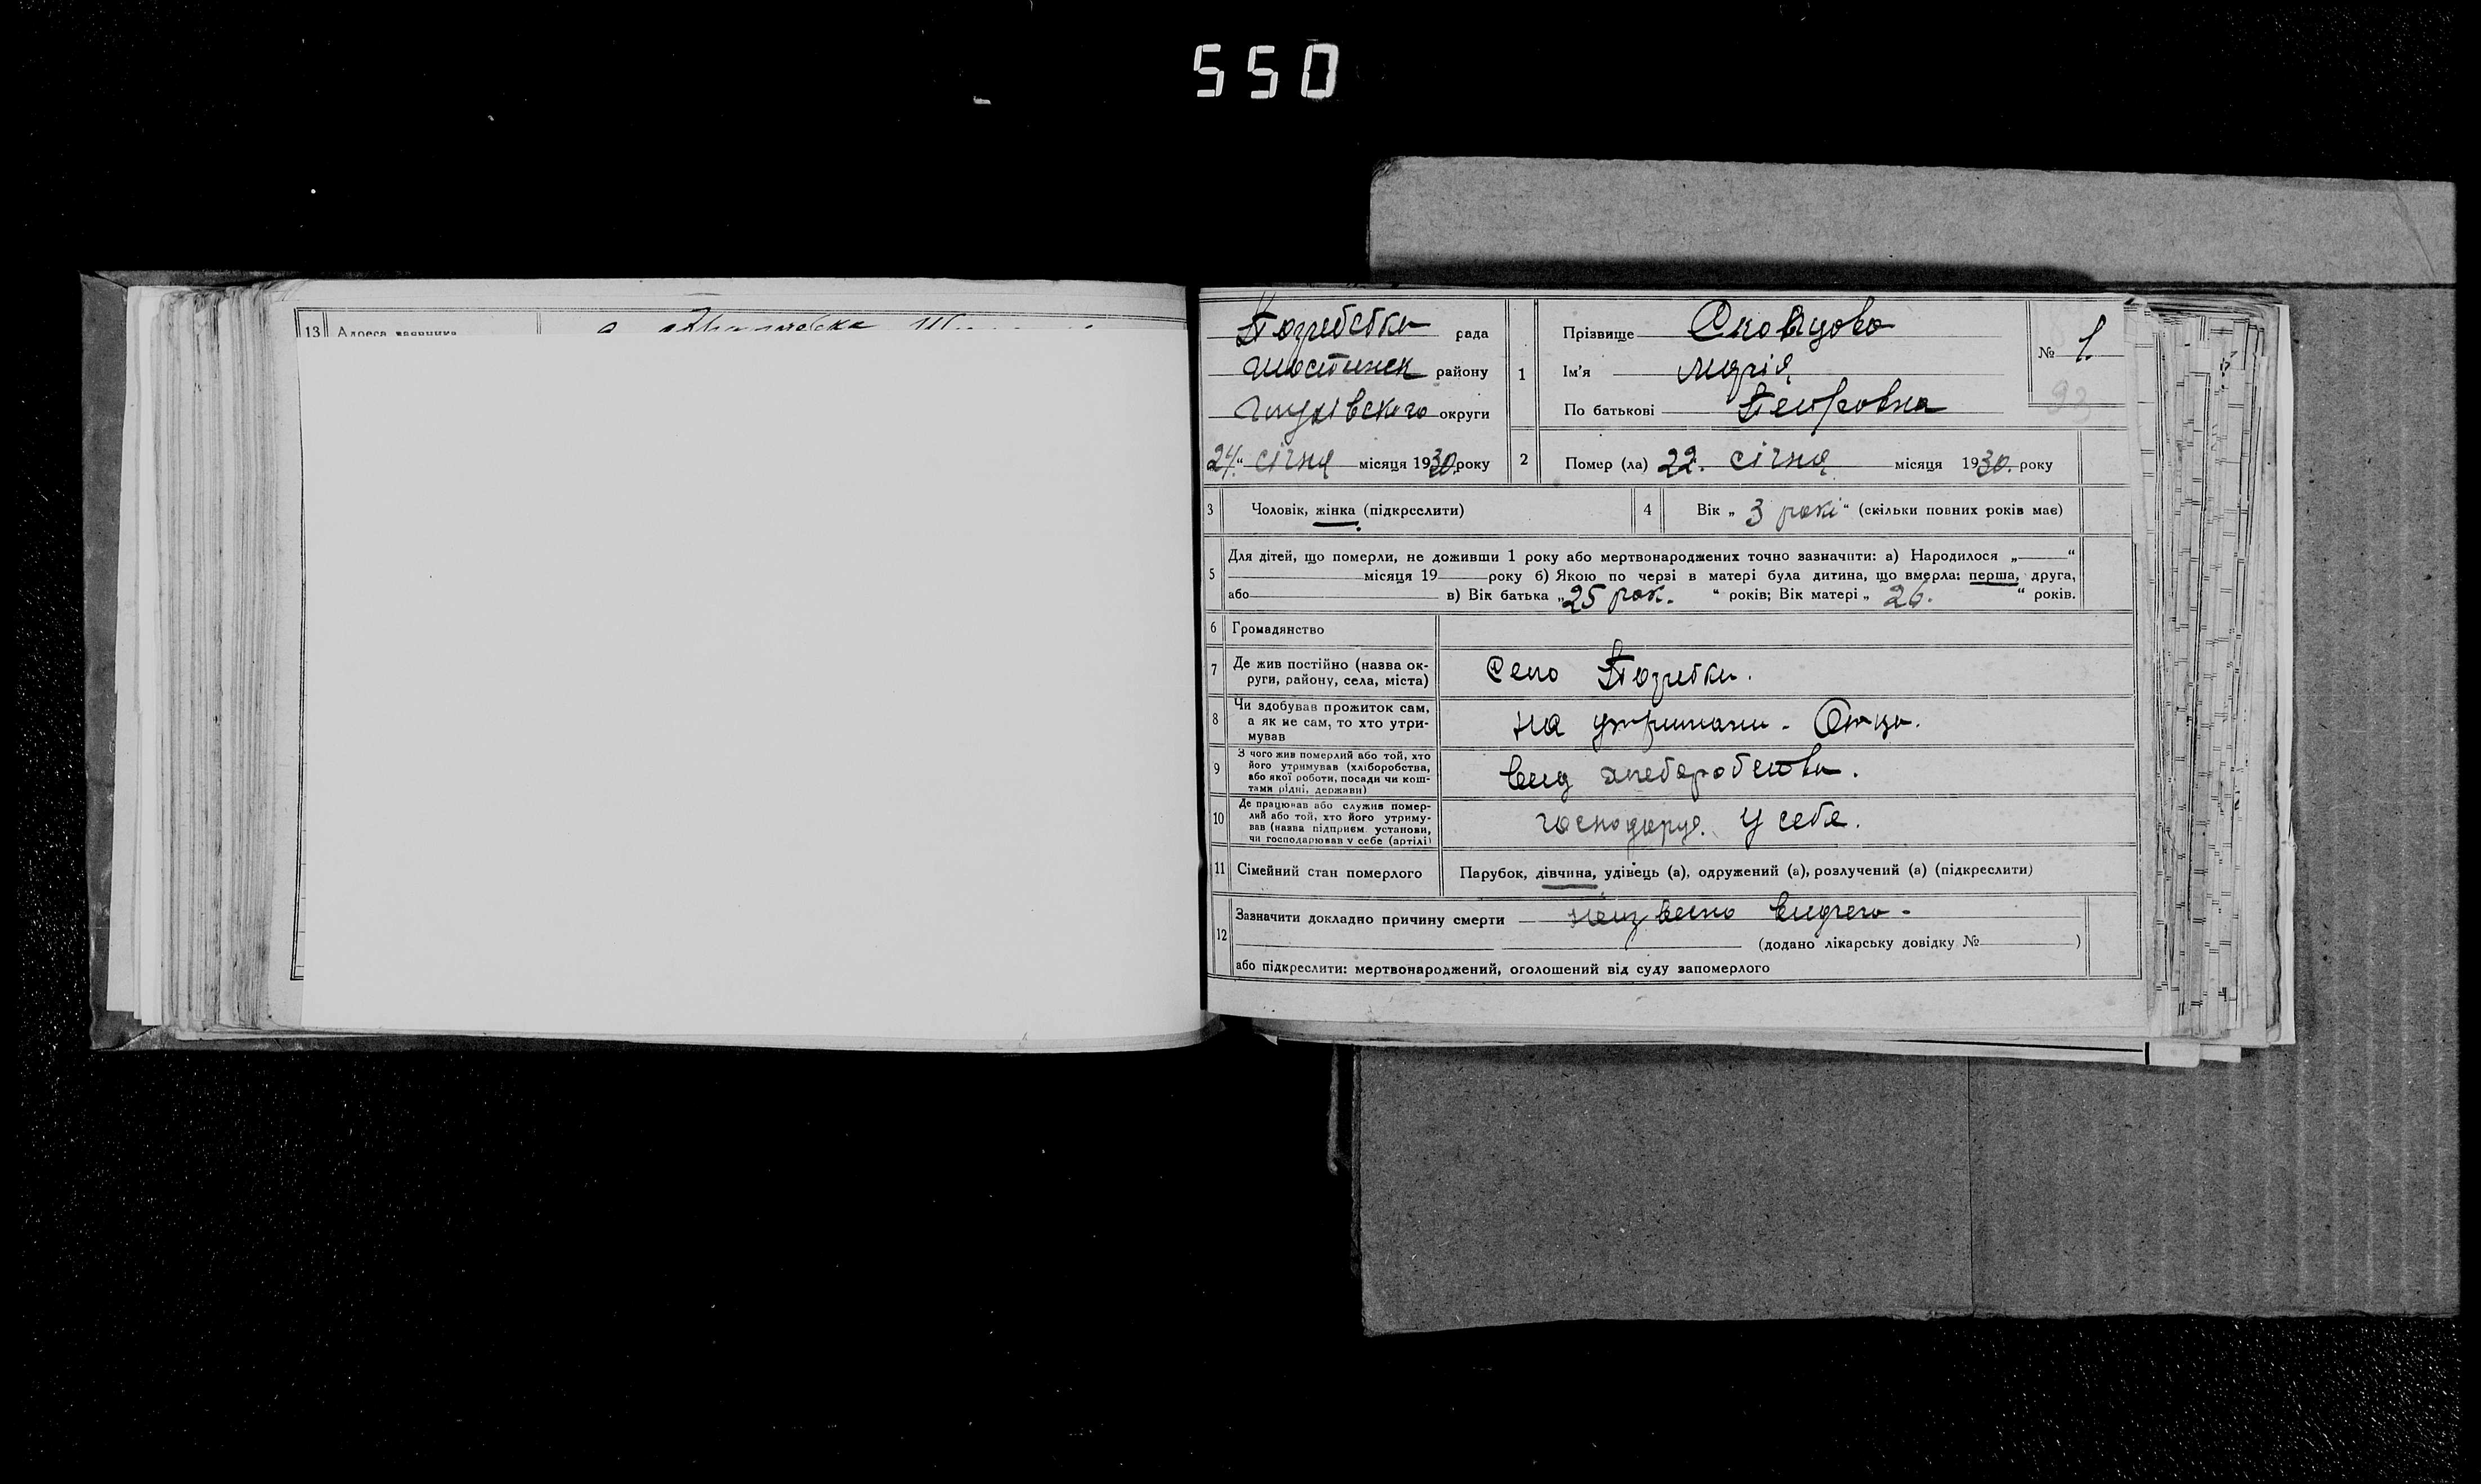 550
13 Адреса заявника
Погребски рада
Шостинск району
Глухівского округи
24 " січня місяця 1930 року
1 Прізвище
Ім'я Марія
По батькові Петровна
№ 1.
2 Помер (ла) 22. січня місяця 1930. року
3 Чоловік, жінка (підкреслити)
4 Вік „ 3 рокі " (скільки повних років має)
5 Для дітей, що померли, не доживши 1 року або мертвонароджених точно зазначити: а) Народилося „ "
місяця 19 року б) Якою по черзі в матері була дитина, що вмерла: перша, друга,
або в) Вік батька „ 25 рок. " років; Вік матері „ 26. " років.
6 Громадянство
7 Де жив постійно (назва ок-
руги, району, села, міста)
Село Погребки.
8 Чи здобував прожиток сам,
а як не сам, то хто утри-
мував
на утримани - Отца.
9 З чого жив померлий або той, хто
його утримував (хліборобства,
або якої роботи, посади чи кош-
тами рідні, держави)
вид хлеборобства.
10 Де працював або служив помер-
лий або той, хто його утриму-
вав (назва підприєм. установи,
чи господарював у себе (артілі)
господарує. у себе.
11 Сімейний стан померлого
Парубок, дівчина, удівець (а), одружений (а), розлучений (а) (підкреслити)
12 Зазначити докладно причину смерти неизвесно видчего -
(додано лікарську довідку № )
або підкреслити: мертвонароджений, оголошений від суду запомерлого